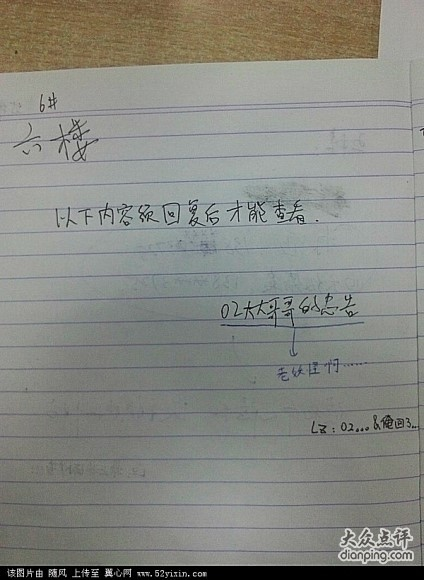 6#
六楼
以下内容须回复后才能查看.
02大大哥哥的忠告
老妖怪啊……
LZ：02...&俺回3...
大众点评
dianping.com
该图片由 随风 上传至 翼心网 http://www.52yixin.com